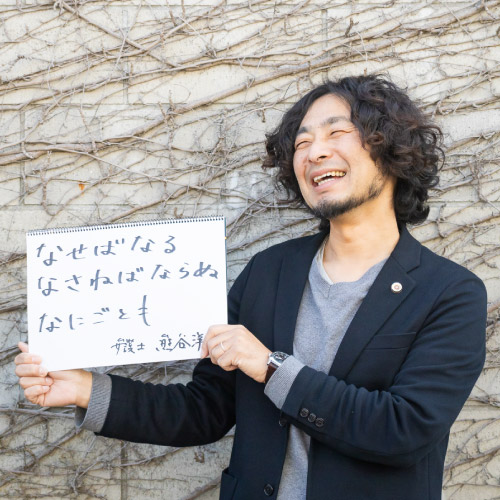 なせばなる
なさねばならぬ
なにごとも
弁護士 熊谷洋